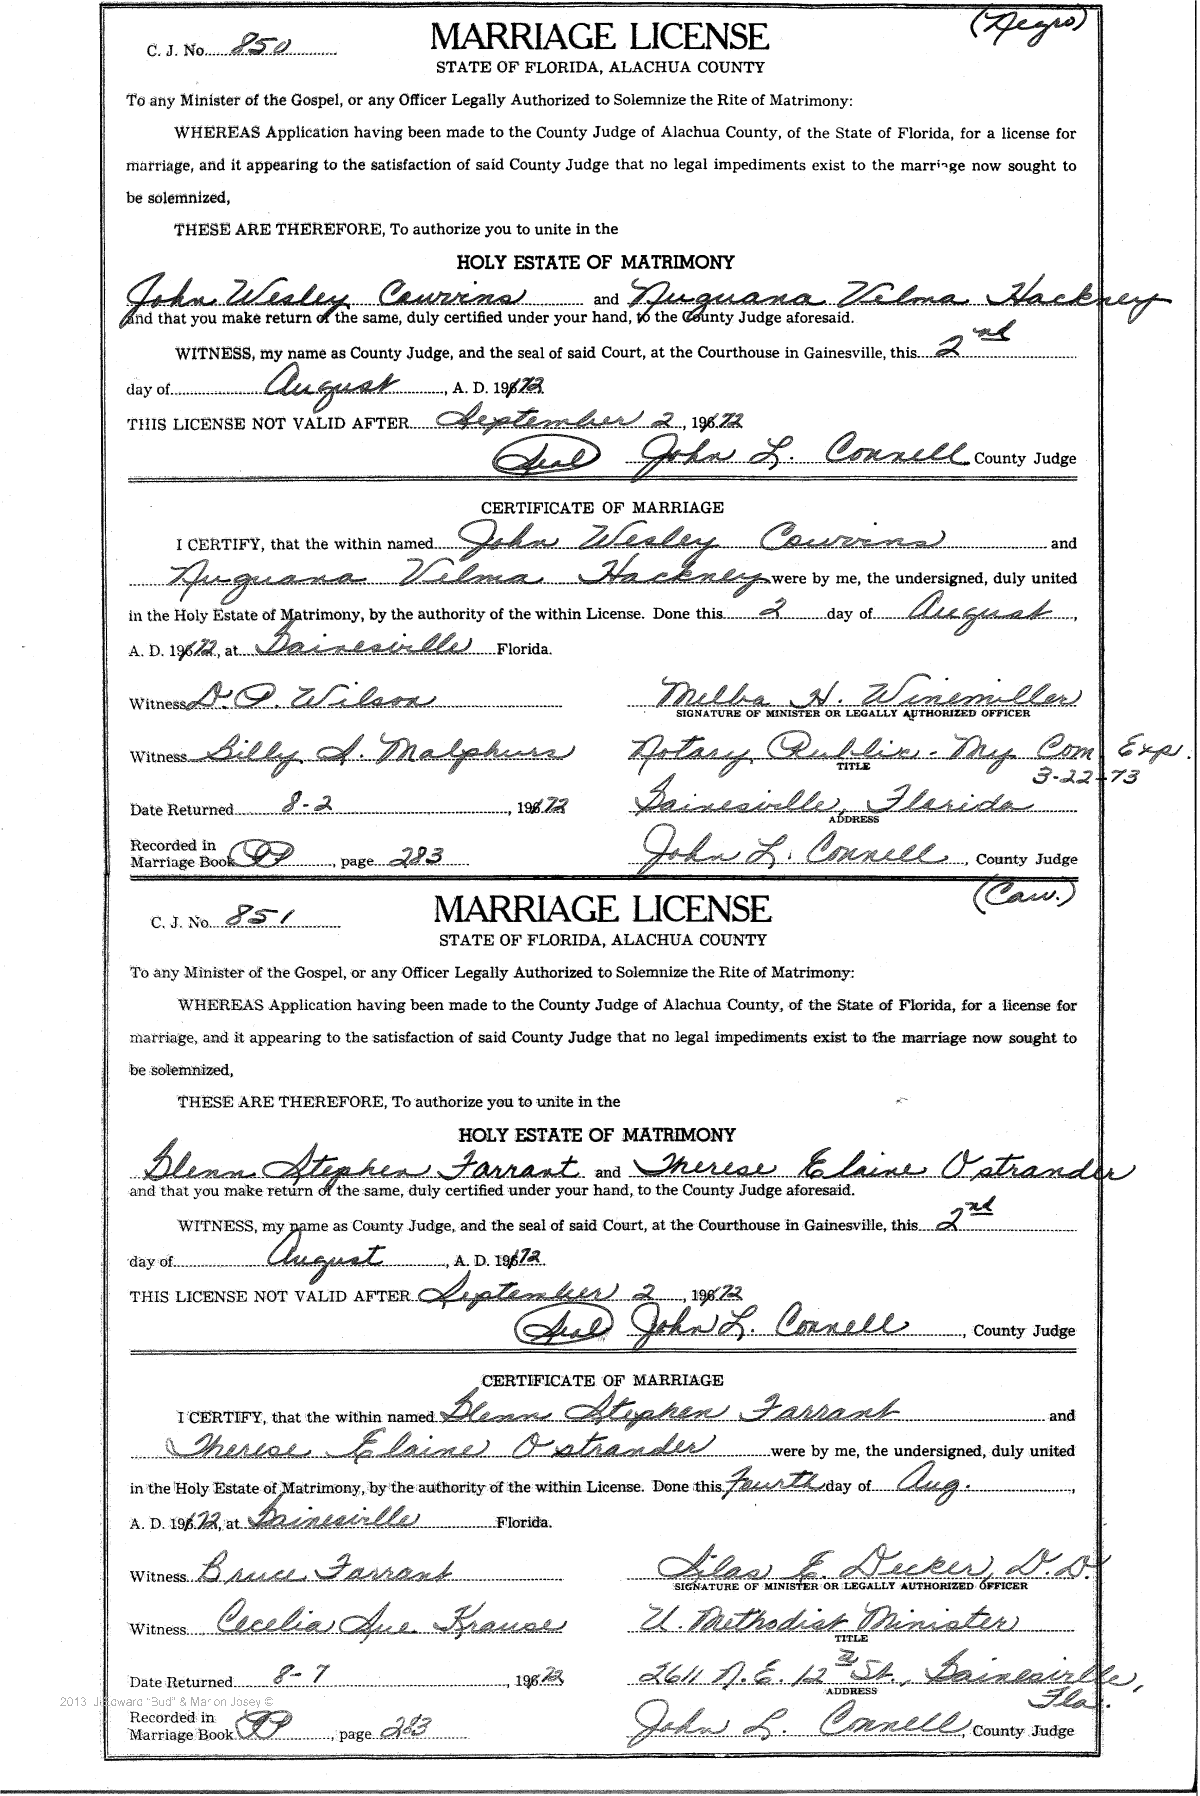 (Negro)
C. J. No. 850 MARRIAGE LICENSE
STATE OF FLORIDA, ALACHUA COUNTY
To any Minister of the Gospel, or any Officer Legally Authorized to Solemnize the Rite of Matrimony:
WHEREAS Application having been made to the County Judge of Alachua County, of the State of Florida, for a license for
marriage, and it appearing to the satisfaction of said County Judge that no legal impediments exist to the marriage now sought to
be solemnized,
THESE ARE THEREFORE, To authorize you to unite in the
HOLY ESTATE OF MATRIMONY
John Wesley Cowvins and Nuguana Velma Hackney
and that you make return of the same, duly certified under your hand, to the County Judge aforesaid.
WITNESS, my name as County Judge, and the seal of said Court, at the Courthouse in Gainesville, this 2nd
day of August, A. D. 1972
THIS LICENSE NOT VALID AFTER September 2, 1972
(Seal) John L. Connell County Judge
CERTIFICATE OF MARRIAGE
I CERTIFY, that the within named John Wesley Cowvins and
Nuguana Velma Hackney were by me, the undersigned, duly united
in the Holy Estate of Matrimony, by the authority of the within License. Done this 2 day of August,
A. D. 1972, at Gainesville Florida.
Witness D. P. Wilson Melba H. Winemiller
SIGNATURE OF MINISTER OR LEGALLY AUTHORIZED OFFICER
Witness Billy S. Malphurs Notary Public - My Com Exp.
TITLE 3-22-73
Date Returned 8-2, 1972 Gainesville, Florida
ADDRESS
Recorded in
Marriage Book PP, page 283 John L. Connell, County Judge
(Cau.)
C. J. No. 851 MARRIAGE LICENSE
STATE OF FLORIDA, ALACHUA COUNTY
To any Minister of the Gospel, or any Officer Legally Authorized to Solemnize the Rite of Matrimony:
WHEREAS Application having been made to the County Judge of Alachua County, of the State of Florida, for a license for
marriage, and it appearing to the satisfaction of said County Judge that no legal impediments exist to the marriage now sought to
be solemnized,
THESE ARE THEREFORE, To authorize you to unite in the
HOLY ESTATE OF MATRIMONY
Glenn Stephen Farrant and Therese Elaine Ostrander
and that you make return of the same, duly certified under your hand, to the County Judge aforesaid.
WITNESS, my name as County Judge, and the seal of said Court, at the Courthouse in Gainesville, this 2nd
day of August, A. D. 1972
THIS LICENSE NOT VALID AFTER September 2, 1972
(Seal) John L. Connell, County Judge
CERTIFICATE OF MARRIAGE
I CERTIFY, that the within named Glenn Stephen Farrant and
Therese Elaine Ostrander were by me, the undersigned, duly united
in the Holy Estate of Matrimony, by the authority of the within License. Done this Fourth day of Aug.,
A. D. 1972, at Gainesville Florida.
Witness Bruce Farrant Silas E. Decker, D.D.
SIGNATURE OF MINISTER OR LEGALLY AUTHORIZED OFFICER
Witness Cecelia Sue Krause U. Methodist Minister
TITLE
Date Returned 8-7, 1972 2611 N.E. 12th St., Gainesville, Fla.
ADDRESS
2013 J Edward "Bud" & Marion Josey ©
Recorded in
Marriage Book PP, page 283 John L. Connell, County Judge